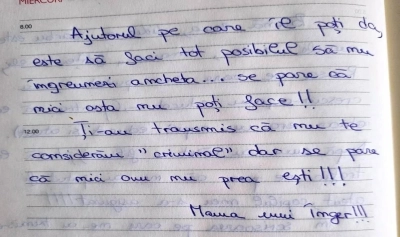 MIERCURI
8:00
Ajutorul pe care îl poți da,
este să faci tot posibilul să nu
îngreunezi ancheta... se pare că
nici asta nu poți face!!
12:00
Ți-au transmis că nu te
considerăm "criminal" dar se pare
că nici om nu prea ești!!!
Mama unui înger!!!